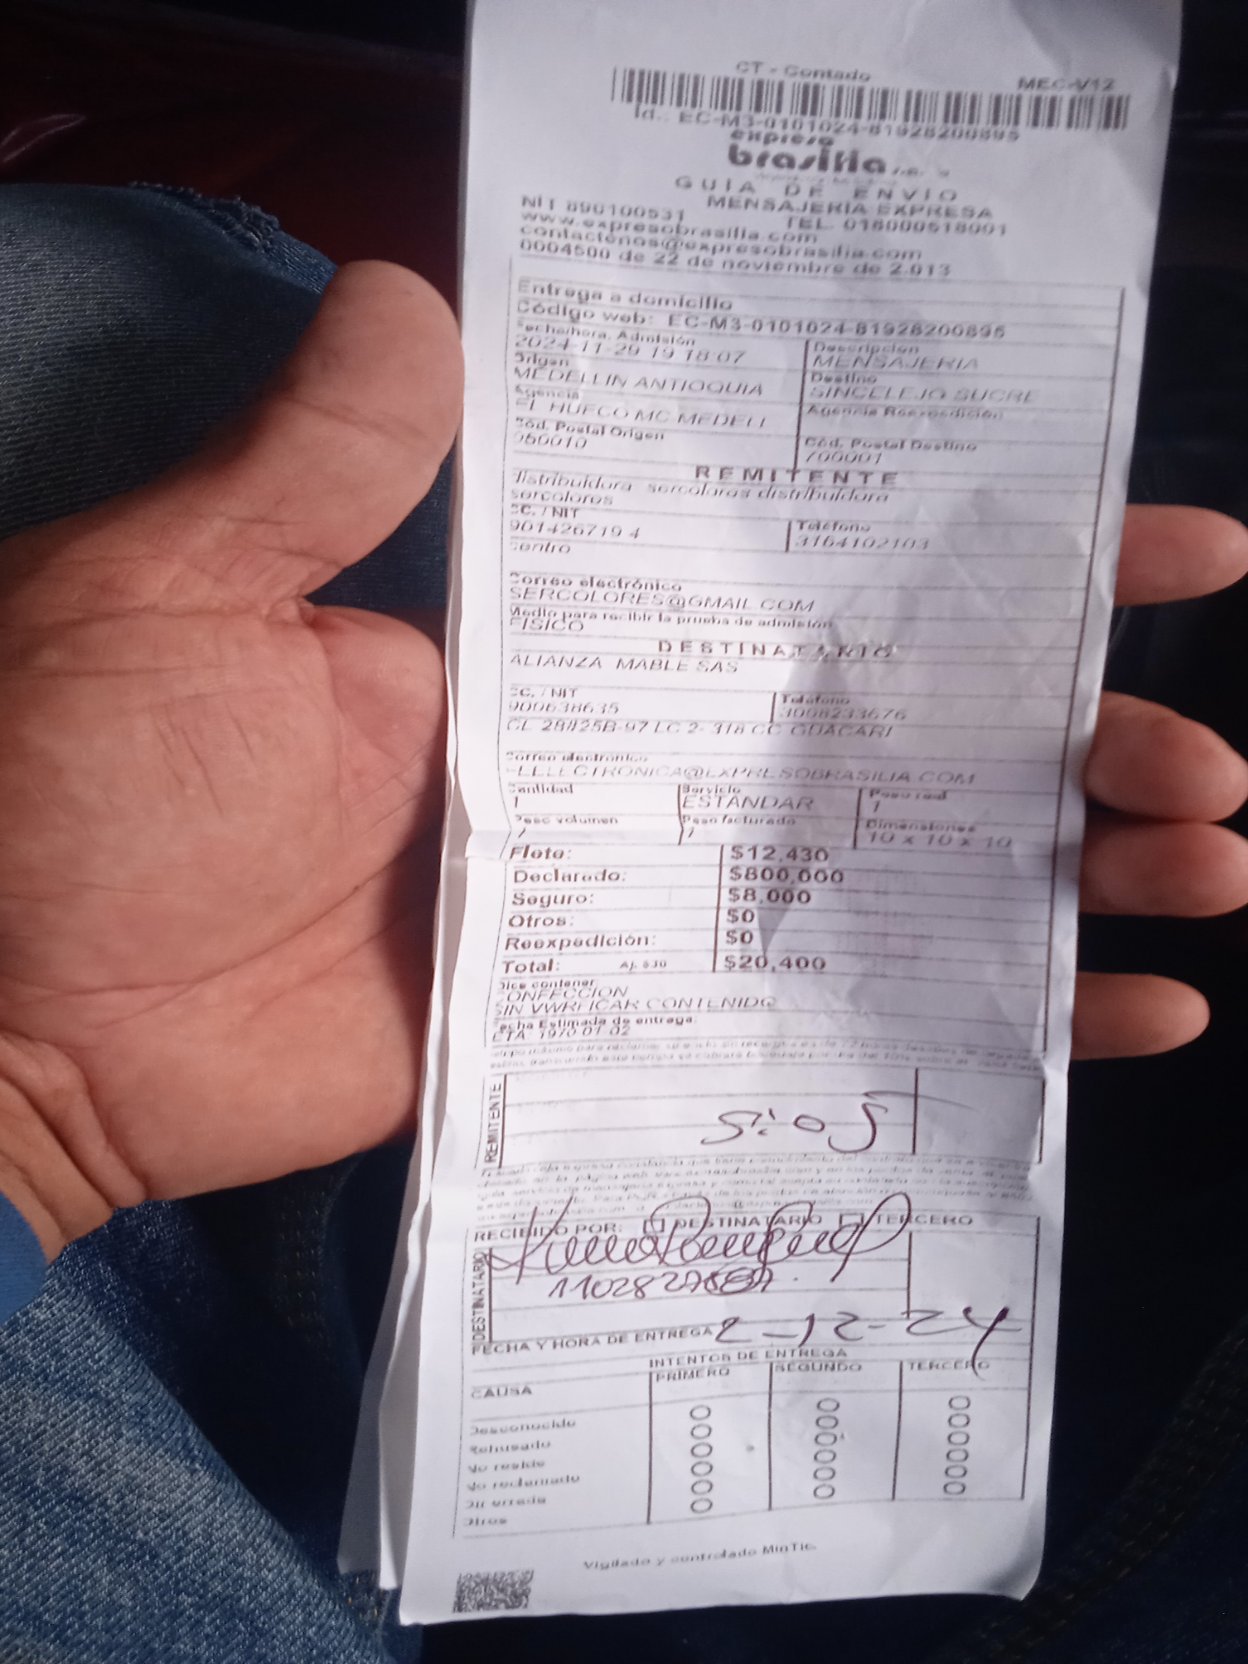 CT - Contado
MEC-V12
Id.: EC-M3-0101024-81928200895
expreso
brasilia s.a.
GUIA DE ENVIO
MENSAJERIA EXPRESA
NIT 890100531 TEL. 018000518001
www.expresobrasilia.com
contactenos@expresobrasilia.com
0004500 de 22 de noviembre de 2.013
Entrega a domicilio
Código web: EC-M3-0101024-81928200895
Fecha/hora. Admisión Descripcion
2024-11-29 19 18 07 MENSAJERIA
Origen Destino
MEDELLIN ANTIOQUIA SINCELEJO SUCRE
Agencia Agencia Reexpedición
EL HUECO MC MEDELL
Cód. Postal Origen Cód. Postal Destino
050010 700001
REMITENTE
distribuidora sercolores distribuidora
sercolores
CC. / NIT Teléfono
901426719 4 3164102103
centro
Correo electrónico
SERCOLORES@GMAIL.COM
Medio para recibir la prueba de admisión
FISICO
DESTINATARIO
ALIANZA MABLE SAS
CC. / NIT Teléfono
900638635 3008233676
CL 28#25B-97 LC 2- 318 CC GUACARI
Correo electronico
@EXPRESOBRASILIA.COM
Cantidad Servicio Peso real
1 ESTANDAR 1
Peso volumen Peso facturado Dimensiones
1 1 10 x 10 x 10
Flete: $12,430
Declarado: $800,000
Seguro: $8,000
Otros: $0
Reexpedición: $0
Total: Aj. $30 $20,400
Dice contener
CONFECCION
SIN VWRFICAR CONTENIDO
Fecha Estimada de entrega:
ETA: 1970-01-02
REMITENTE
RECIBIDO POR: DESTINATARIO TERCERO
DESTINATARIO
FECHA Y HORA DE ENTREGA 2-12-24
INTENTOS DE ENTREGA
CAUSA PRIMERO SEGUNDO TERCERO
Desconocido
Rehusado
No reside
No reclamado
Dir errada
Otros
Vigilado y controlado MinTic